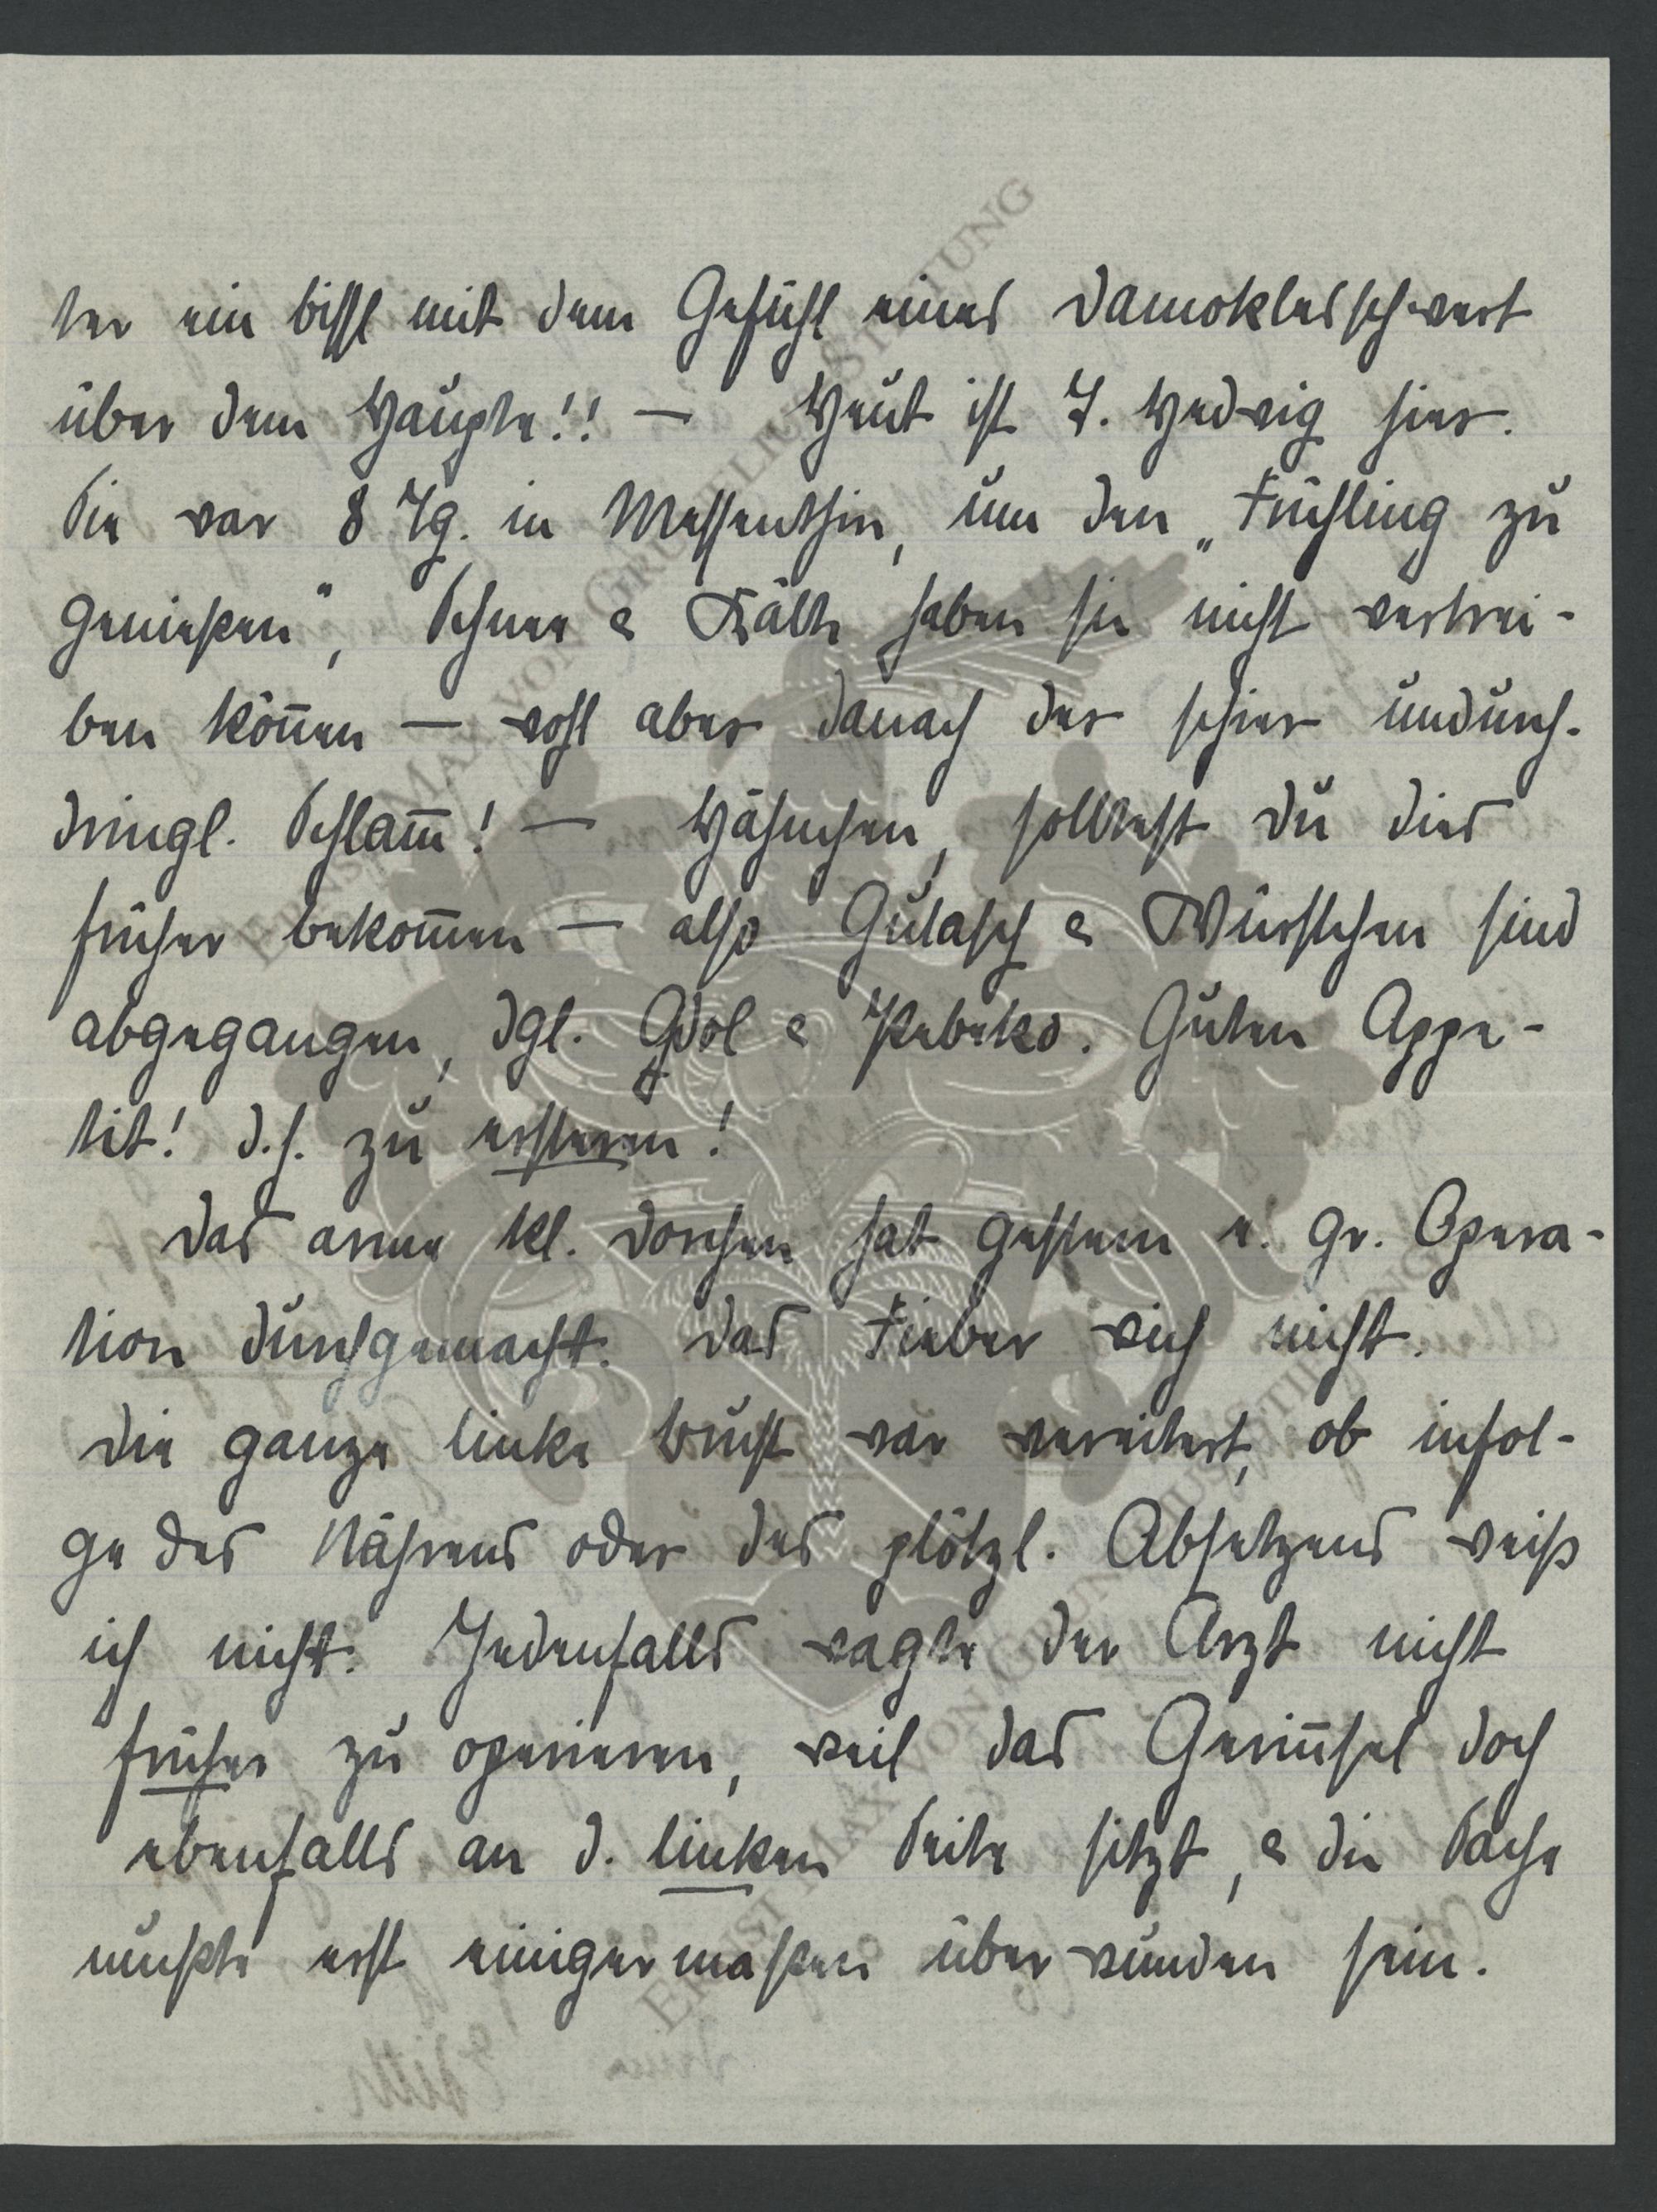 ter ein bissl mit dem Gefühl eines Damoklesschwert
über dem Haupte!! — Heut ist T. Hedwig hier.
Sie war 8 Tg. in Messenthin, um den „Frühling zu
genießen", Schnee & Kälte haben sie nicht vertrei-
ben kön̄en — wohl aber danach der schier undurch-
dringl. Schlam̄! — Hähnchen, solltest Du dies
früher bekom̄en — also Gulasch & Würstchen sind
abgegangen, dgl. &  Guten Appe-
tit! d.h. zu ersteren!
Das arme kl. Dorchen hat gestern e. gr. Opera-
tion durchgemacht. Das Fieber wich nicht.
Die ganze linke Brust war vereitert, ob infol-
ge des Nährens oder des plötzl. Absetzens weiß
ich nicht. Jedenfalls wagte der Arzt nicht
früher zu operieren, weil das Gerin̄sel doch
ebenfalls an d. linken Seite sitzt, & die Sache
mußte erst einigermaßen überwunden sein.
ERNST MAX VON GRUNELIUS-STIFTUNG
ERNST MAX VON GRUNELIUS-STIFTUNG